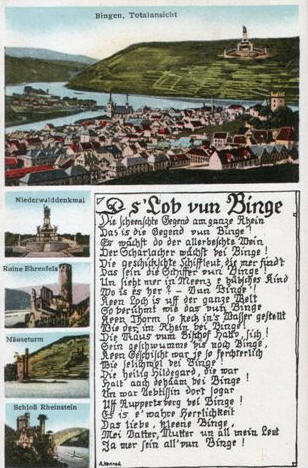 Bingen, Totalansicht
Niederwalddenkmal
Ruine Ehrenfels
Mäuseturm
Schloß Rheinstein
D s'Lob vun Binge
Die scheenschte Gegend am ganze Rhein
Das is die Gegend vun Binge!
Es wächst do der allerbeschte Wein
Der Scharlacher wächst bei Binge!
Die geschicktschte Schiffleut, die mer findt
Das sein die Schiffer vun Binge!
Un sieht mer in Meenz e hübsches Kind
Wo is es her? - Vun Binge!
Keen Loch is uff der ganze Welt
So berühmt wie das vun Binge!
Keen Thorm so keck in's Wasser gestellt
Wie der im Rhein bei Binge!
Die Mäus vum Bischof Hatto, sich!
Sein geschwumme bis noch Binge,
Keen Geschicht war je so ferchterlich
Wie selichmol bei Binge!
Die heilig Hildegard, die war
Halt aach dehaam bei Binge!
Un war Aebtissin dort sogar
Uff Ruppertsberg bei Binge!
Es is e' wahre Herrlichkeit
Das liebe, kleene Binge,
Mei Vatter, Mutter un all mein Leut
Ja mer sein all' vun Binge!